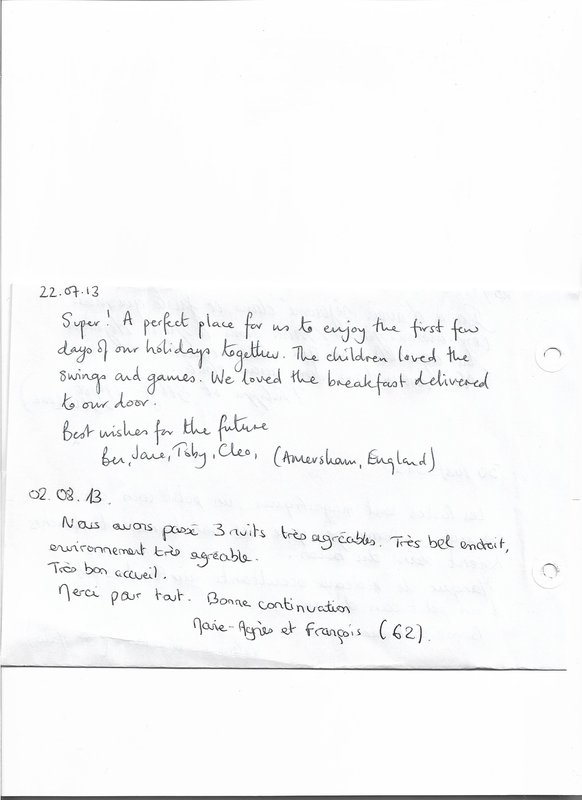 22.07.13
Super! A perfect place for us to enjoy the first few
days of our holidays together. The children loved the
swings and games. We loved the breakfast delivered
to our door.
Best wishes for the future
Ben, Jane, Toby, Cleo, (Amersham, England)
02.08.13.
Nous avons passé 3 nuits très agréables. Très bel endroit,
environnement très agréable.
Très bon accueil.
Merci pour tout. Bonne continuation
Marie-Agnès et François (62).